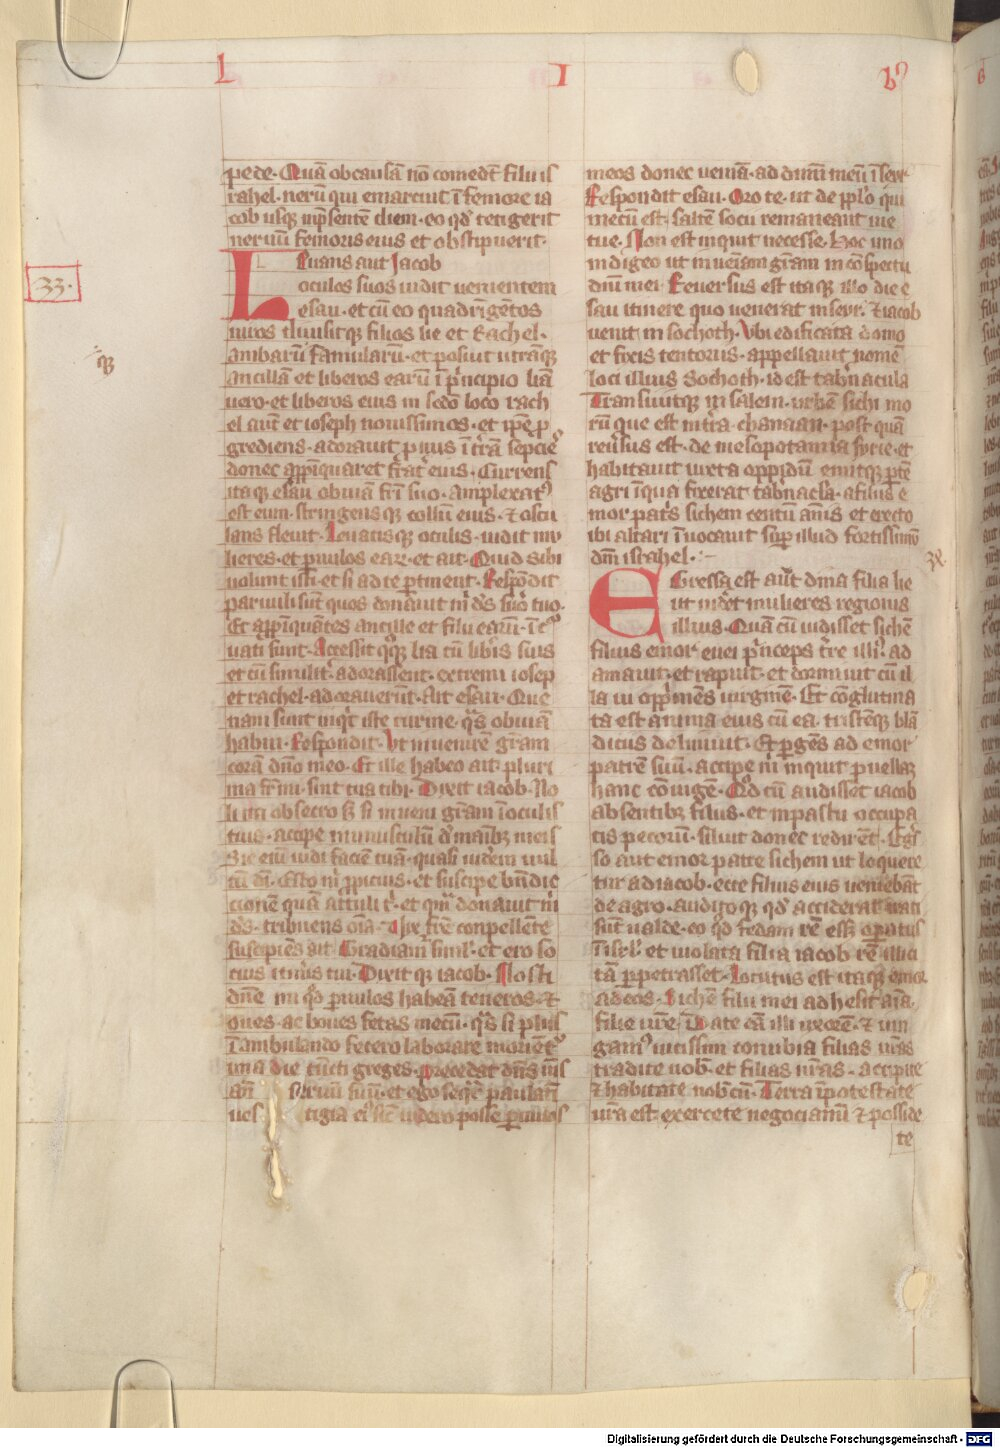 L I bꝰ
pede. Quā ob causā nō comedt̄ filii is
rahel. neruū qui emarcuit ī femore ia
cob usqꝫ inp̄sentē diem. eo qd̓ tetigerit
neruū femoris eius et obstipuerit.
33.
Leuans aut Jacob
oculos suos uidit uenientem
esau. et cū eo quadrīgētos
uiros diuisitqꝫ filios lie et Rachel.
ambarū famularū. et posuit utrāqꝫ
qꝫ
ancillā et liberos earū ī prīcipio liā
uero. et liberos eius in sc̄do loco rach
el aut̄ et ioseph nouissimos. et ip̄e ꝓ
grediens. adorauit pnus ī t̄rā sepcie
donec app̄īquaret frat̄ eius. Currens
itaqꝫ esau obuiā fr̄i suo. amplexatꝰ
est eum. stringens qꝫ collū eius. ⁊ oscu
lans fleuit. Leuatis qꝫ oculis. uidit mu
lieres. et paruulos eaꝝ. et ait. Quid sibi
uolunt isti. et si ad te ꝑtinent. Respōdit
paruuli sūt quos donauit m̄ ds̄ suo tuo.
Et app̄īquātes ancille et filii earū. ī cꝰ
uati sunt. Accessit qꝫ lia cū lib̄is suis
et cū similit̄. adorassent. extremi iosep
et rachel. adorauerūt. Ait esau. Que
nam sunt inqt̄ iste turme. qs̄ obuiā
habui. Respondit. Ut inuenirē gr̄am
corā dn̄o meo. Et ille habeo ait. pluri
ma fr̄ mi. sint tua tibi. Dixit iacob. No
li ita obsecro sꝫ si inueni gr̄am ī oculis
tuis. accipe munusculū d̓ manibꝫ meis
Sic eni uidi faciē tuā. quasi uidem uul
tū di. Esto m̄ ꝓpicius. et suscipe bn̄dic
tionē quā attuli t̄. et quā donauit m̄
ds̄. tribuens oīa. Uix fr̄e conpellente
suscipiēs ait. Gradiam̄ siml̄. et ero so
cius itinīs tui. Dixit qꝫ iacob. Nosti
dn̄e mi qd̓ paruulos habeā teneros. ⁊
oues. ac boues fetas mecū. qs̄ si plus
ī ambulando fecero laborare morient̄ꝰ
una die cūcti greges. Precedat dn̄s m̄s
an̄ seruū suū. et ego seqr̄e paulatī
ues tigia eiꝰ sic̄ uidero posse paruulos
meos donec ueniā. ad dnm̄ meū ī seyr
Respondit esau. Oro te. ut de pp̄lo qui
mecū est. saltē socii remaneant uie
tue. Non est inquit necesse. Hoc uno
indigeo ut inueniam gr̄am in cōspectu
dn̄i mei. Reuersus est itaqꝫ illo die e
sau itinere quo uenerat in seyr. ⁊ iacob
uenit in sochoth. Ubi edificata domo
et fixis tentoriis. appellauit nomē
loci illius Sochoth. id est tab̄nacula
Transiuitqꝫ in salem. urbē sichi mo
rū que est in t̄ra. chanaan. post quā
reu̓sus est. de mesopotamia syrie. et
habitauit iuxta oppidū. emitqꝫ ꝑtē
agri īqua fixerat tab̄nacl̄a. a filiis e
mor patis̄ sichem centū agnīs et erecto
ibi altari īuocauit suꝑ illud fortissimū
dm̄ israhel. :–
34.
Egressa est aut̄ dina filia lie
ut uid̓et mulieres regionis
illius. Quā cū uidisset sichē
filius emor euei p̄nceps t̄re illiꝰ. ad
amauit. et rapuit. et dormiuit cū il
la ui opp̄mēs uirginē. Et cōglutina
ta est anima eius cū ea. tristēqꝫ blā
dicus deliniuit. Et ꝑgēs ad emor
patrē suū. accipe m̄ inquit puellaꝫ
hanc coiugē. Qd̓ cū audisset iacob
absentibꝫ filiis. et inpastu occupa
tis pecorū. siluit donec redirēt. Egs̄
so aut emor patre sichem ut loquere
tur ad iacob. ecce filius eius ueniebāt
de agro. audito qꝫ qd̓ acciderat irati
sūt ualde. eo qd̓ fedam rē ess̄ opatus
ī isrl̓. et uiolata filia iacob rē illici
tā ꝑpetrasset. Locutus est itaqꝫ emor
ad eos. Sichē filii mei adhesit aīa.
filie ur̄e. Date eā illi uxorē. ⁊ iun
gamꝰ uicissim conubia filias ur̄as
tradite nob̄. et filias nr̄as. accipite
⁊ habitate nob̄cū. Terra īpotestate
ur̄a est. exercete negociamī ⁊ posside
te
Digitalisierung gefördert durch die Deutsche Forschungsgemeinschaft - DFG